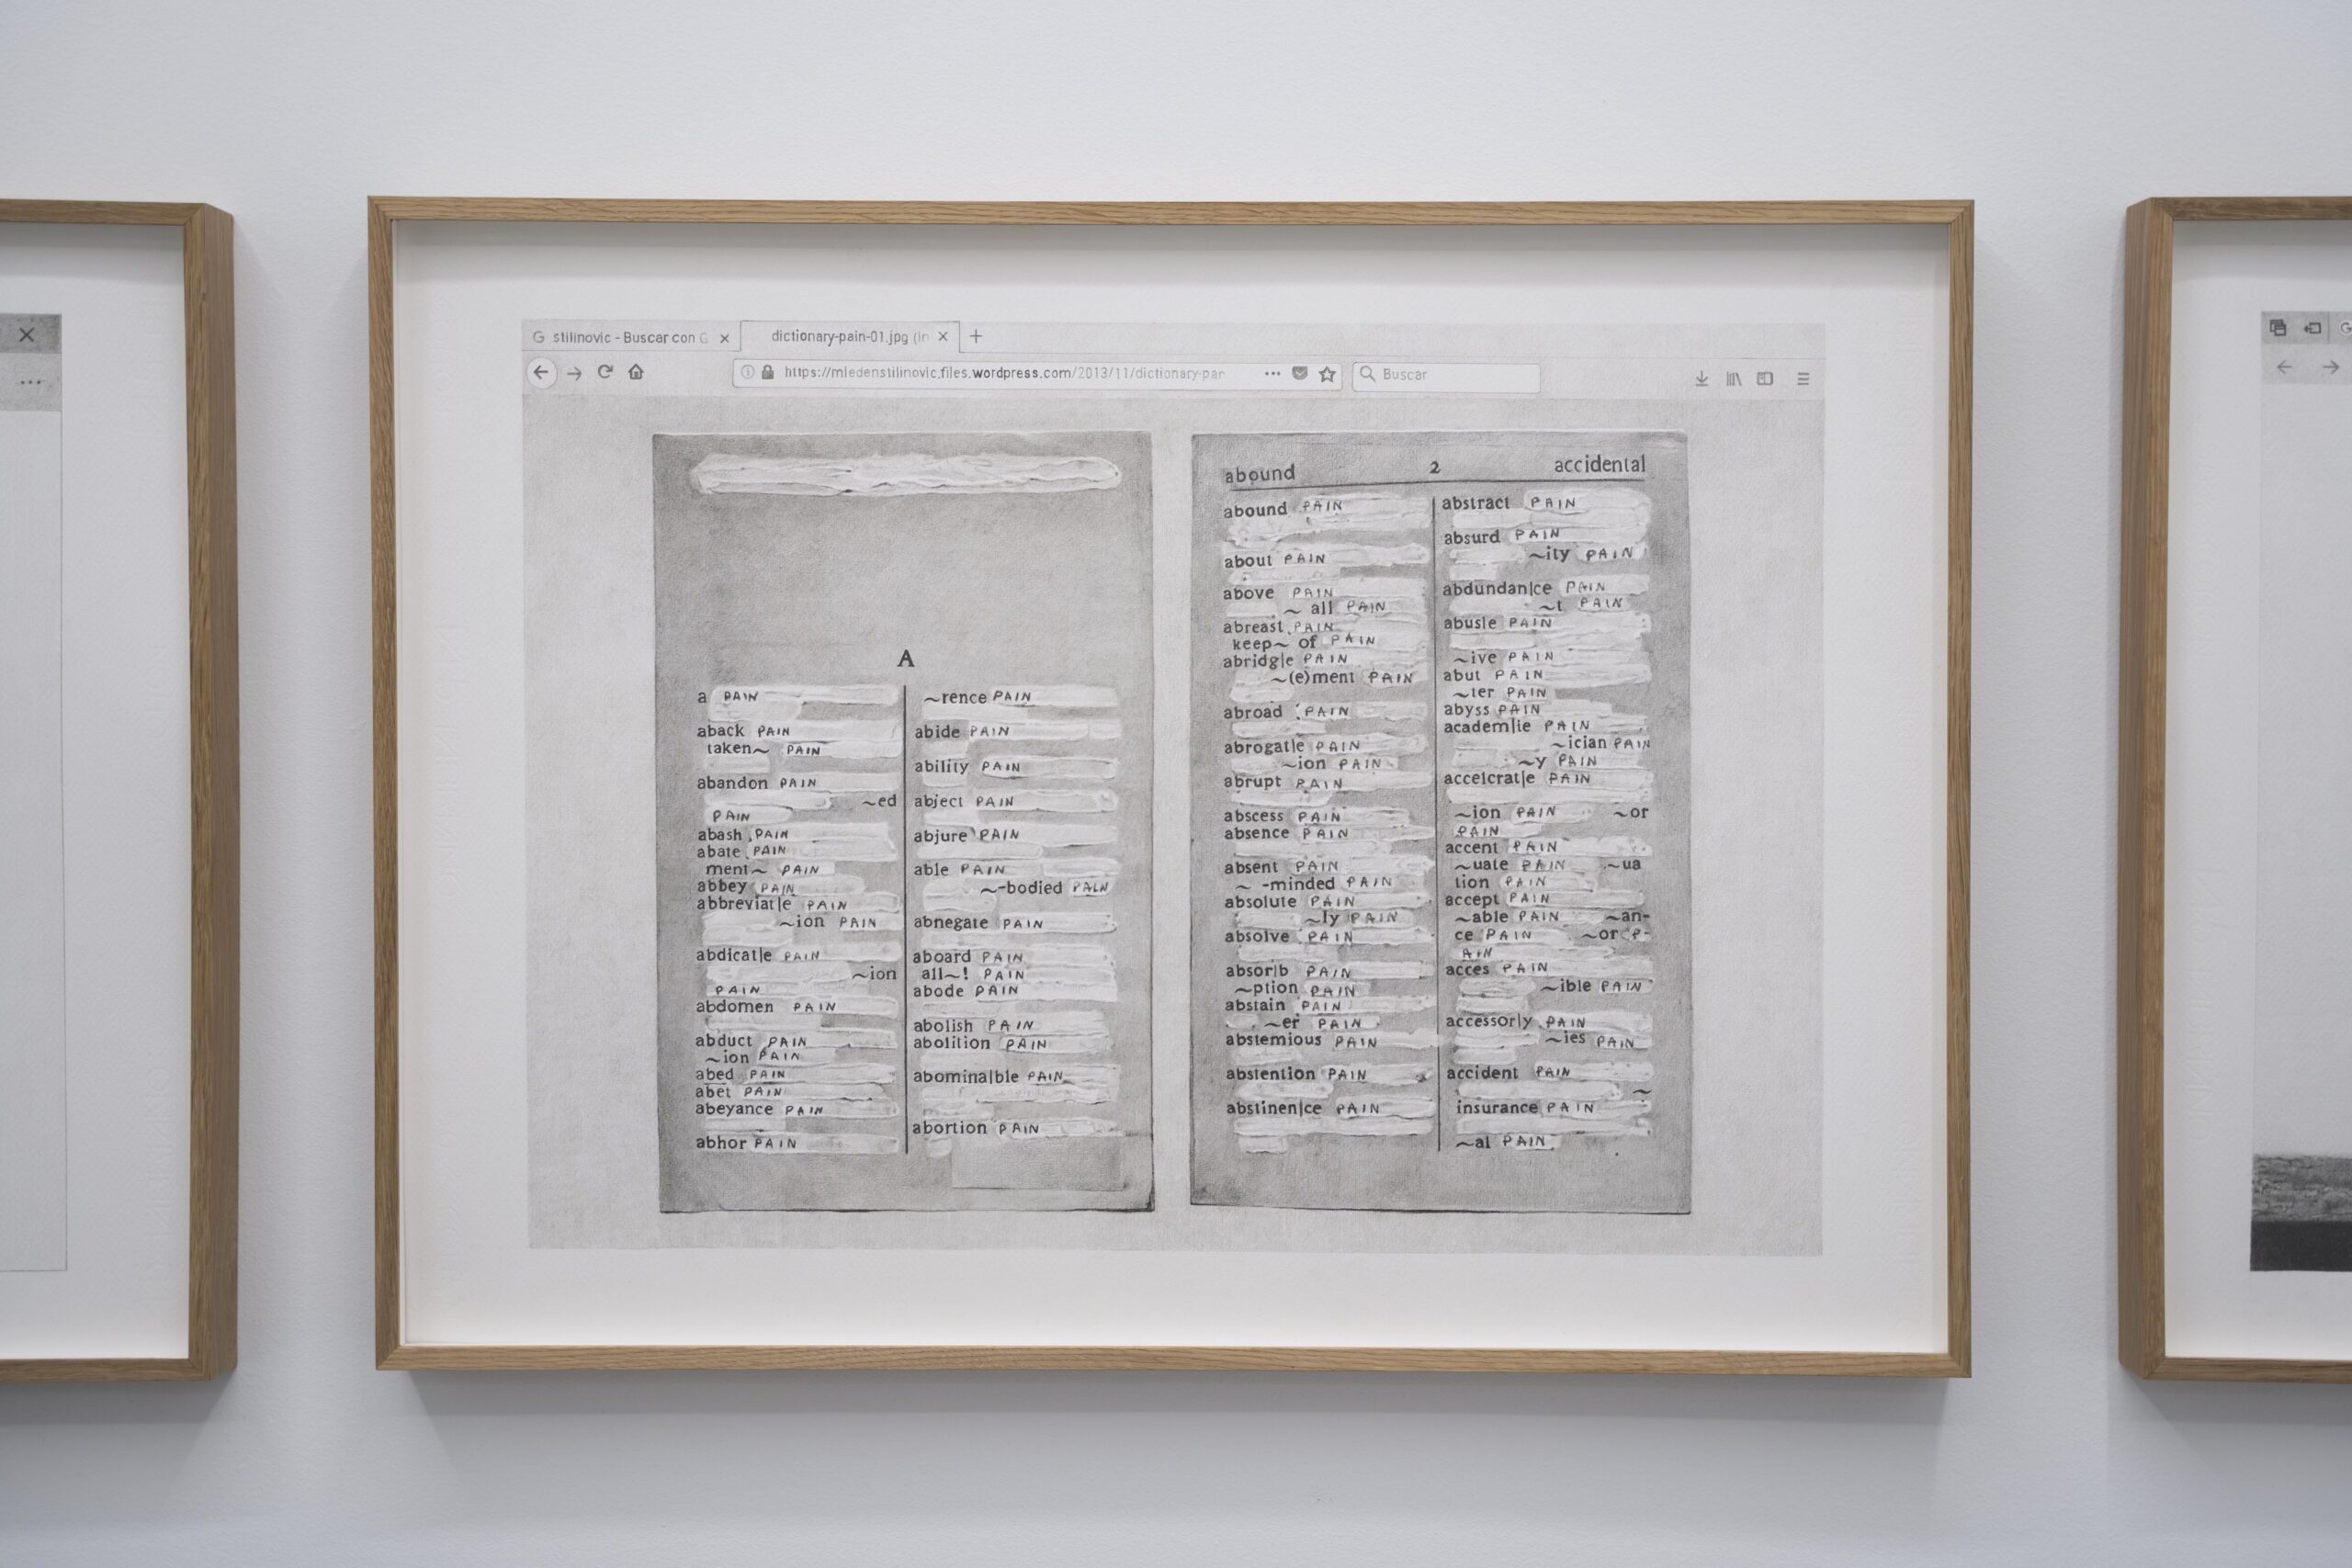 stilinovic - Buscar con G
dictionary-pain-01.jpg (In
https://mledenstilinovic.files.wordpress.com/2013/11/dictionary-pan
Buscar
A
a PAIN
aback PAIN
taken~ PAIN
abandon PAIN
~ed
PAIN
abash PAIN
abate PAIN
ment~ PAIN
abbey PAIN
abbreviat|e PAIN
~ion PAIN
abdicat|e PAIN
~ion
PAIN
abdomen PAIN
abduct PAIN
~ion PAIN
abed PAIN
abet PAIN
abeyance PAIN
abhor PAIN
~rence PAIN
abide PAIN
ability PAIN
abject PAIN
abjure PAIN
able PAIN
~-bodied PAIN
abnegate PAIN
aboard PAIN
all~! PAIN
abode PAIN
abolish PAIN
abolition PAIN
abomina|ble PAIN
abortion PAIN
abound 2 accidental
abound PAIN
about PAIN
above PAIN
~ all PAIN
abreast PAIN
keep~ of PAIN
abridg|e PAIN
~(e)ment PAIN
abroad PAIN
abrogat|e PAIN
~ion PAIN
abrupt PAIN
abscess PAIN
absence PAIN
absent PAIN
~ -minded PAIN
absolute PAIN
~ly PAIN
absolve PAIN
absor|b PAIN
~ption PAIN
abstain PAIN
~er PAIN
abstemious PAIN
abstention PAIN
abstinen|ce PAIN
abstract PAIN
absurd PAIN
~ity PAIN
abdundan|ce PAIN
~t PAIN
abus|e PAIN
~ive PAIN
abut PAIN
~ter PAIN
abyss PAIN
academ|ie PAIN
~ician PAIN
~y PAIN
accelcrat|e PAIN
~ion PAIN ~or
PAIN
accent PAIN
~uate PAIN ~ua
tion PAIN
accept PAIN
~able PAIN ~an-
ce PAIN ~or P-
AIN
acces PAIN
~ible PAIN
accessor|y PAIN
~ies PAIN
accident PAIN
~
insurance PAIN
~al PAIN